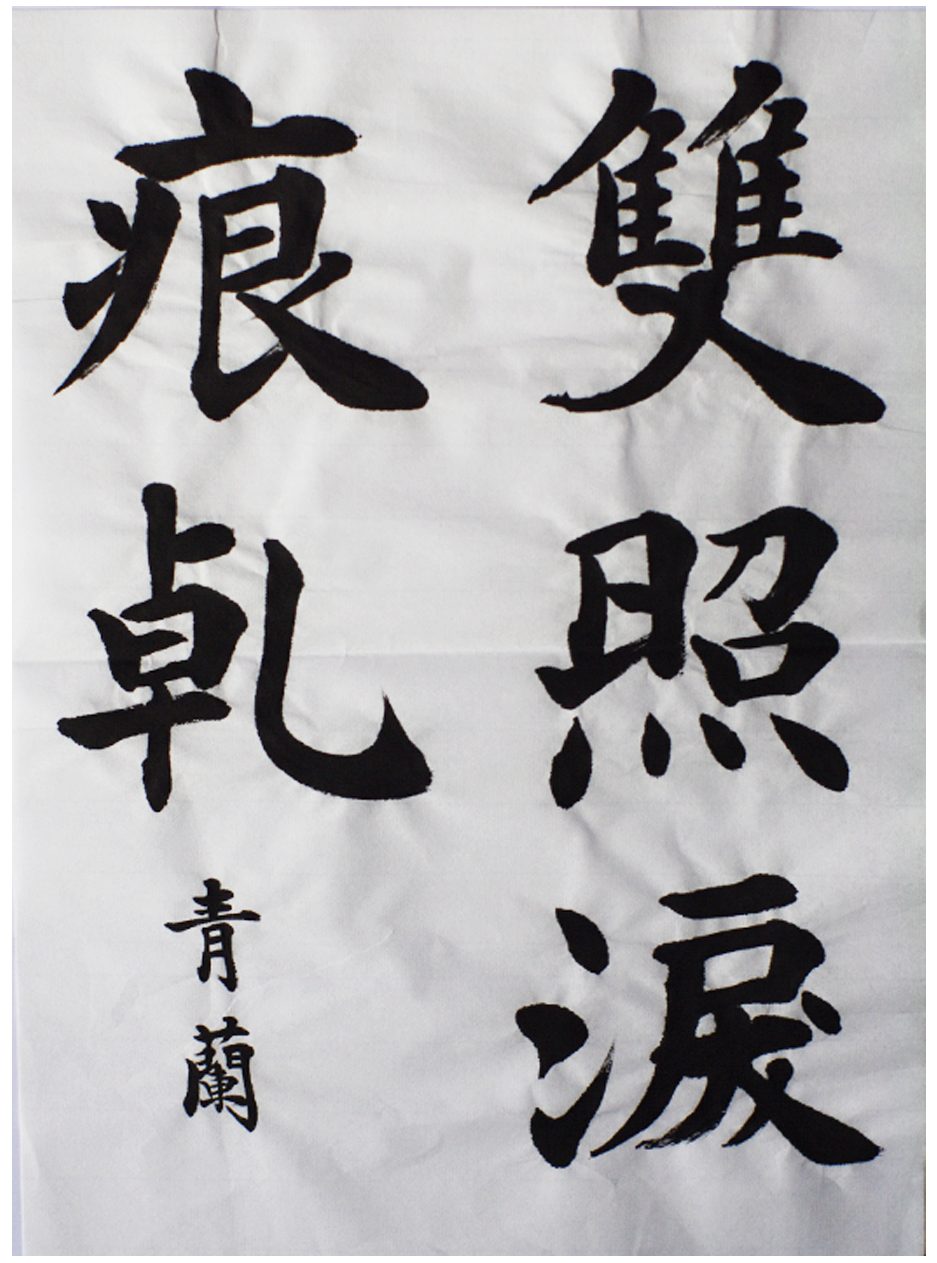 雙照淚
痕乹
青蘭